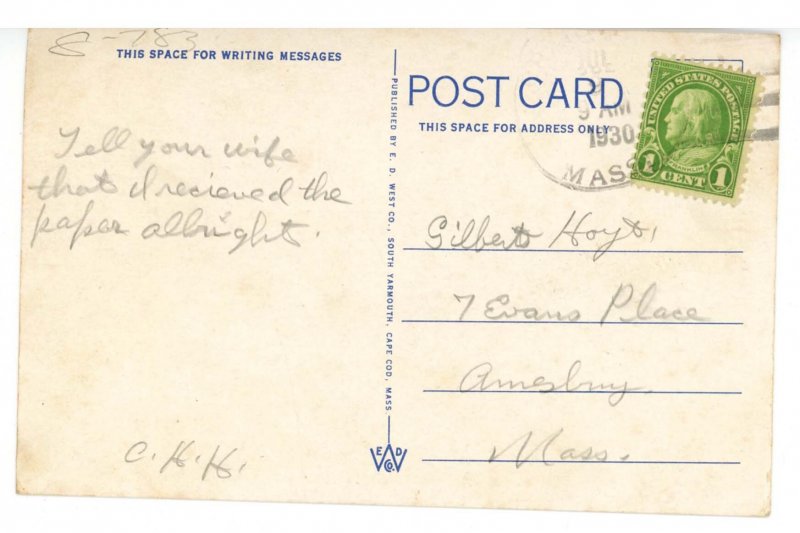 8-783
THIS SPACE FOR WRITING MESSAGES
Tell your wife
that I recieved the
paper allright.
C.H.H.
PUBLISHED BY E. D. WEST CO., SOUTH YARMOUTH, CAPE COD, MASS.
E D
W
Co.
POST CARD
THIS SPACE FOR ADDRESS ONLY
JUL
9 AM
1930
MASS
UNITED STATES POSTAGE
FRANKLIN
1 CENT 1
Gilbert Hoyt,
7 Evans Place
Amesbury
Mass.